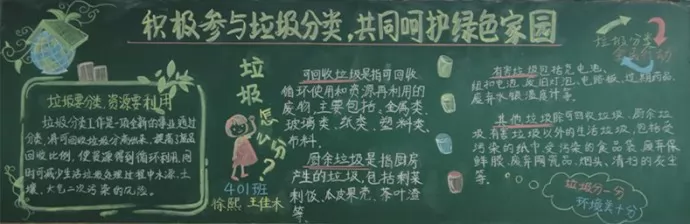 积极参与垃圾分类,共同呵护绿色家园
垃圾要分类,资源要利用
垃圾分类工作是一项全新的事业,通过
分类,将可回收垃圾分离出来,提高了废品
回收比例,使资源得到循环利用,同
时可减少生活垃圾处理过程中水源、土
壤、大气二次污染的风险。
垃圾
怎么分?
401班
徐熙 王佳木
可回收垃圾是指可回收
循环使用和资源再利用的
废物,主要包括:金属类、
玻璃类、纸类、塑料类、
布料。
厨余垃圾是指厨房
产生的垃圾,包括剩菜
剩饭、瓜皮果壳、茶叶渣
等。
有害垃圾包括充电池、
纽扣电池、废旧灯泡、电路板、过期药品、
废弃水银温度计等。
其他垃圾除可回收垃圾、厨余垃
圾、有害垃圾以外的生活垃圾,包括受
污染的纸巾受污染的食品袋、废弃保
鲜膜、废弃陶瓷品、烟头、清扫的灰尘
等。
垃圾分类
垃圾分一分
环境美十分